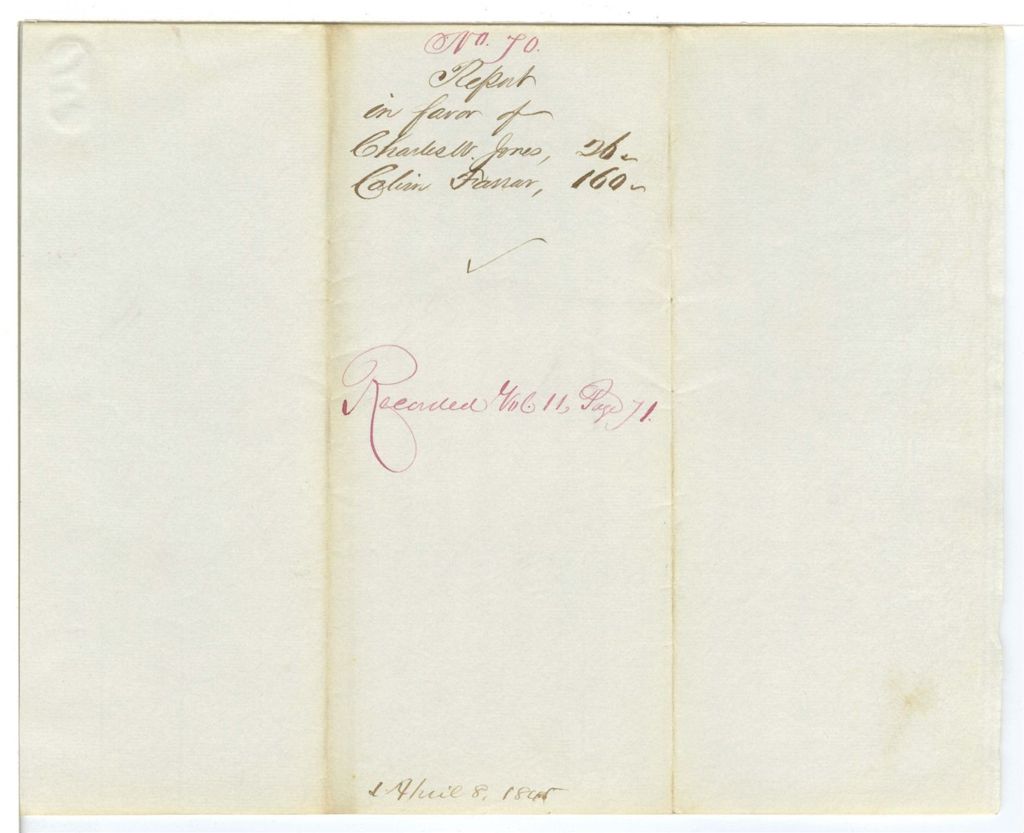 No. 70.
Report
in favor of
Charles W. Jones, 26
Calvin Farrar, 160
Recorded Vol. 11, Page 71.
April 8, 1845